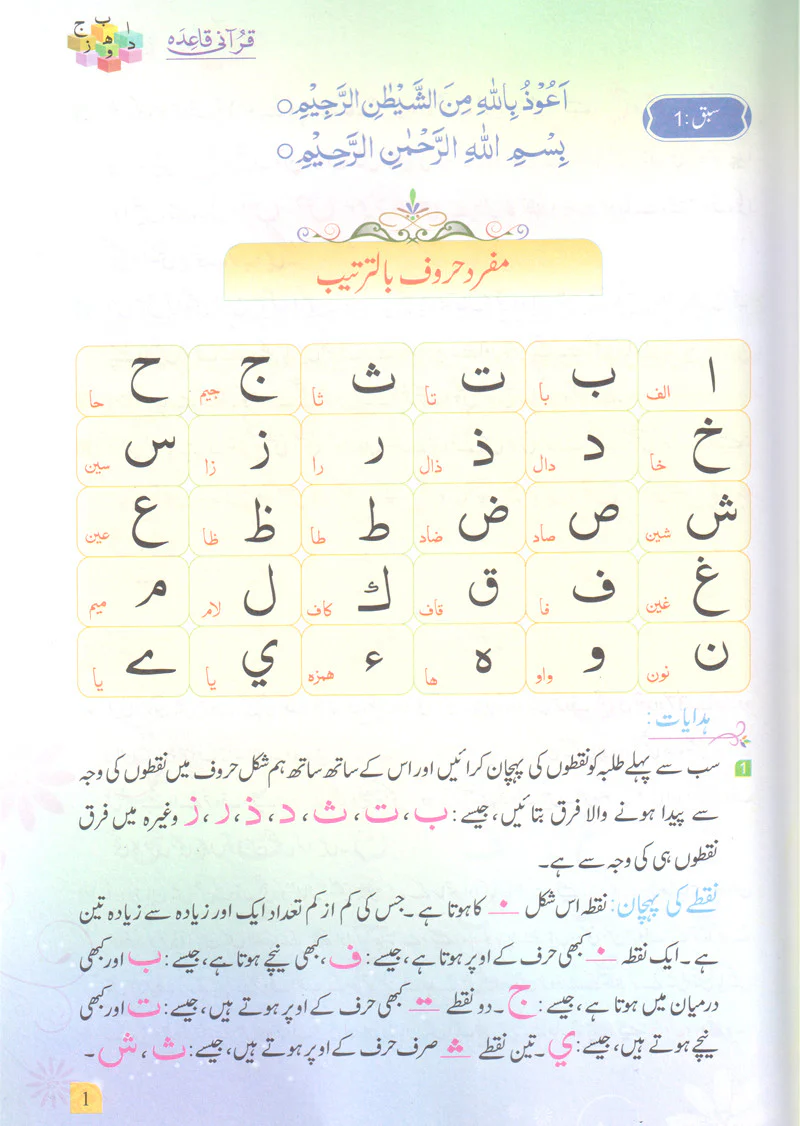 قرآنی قاعدہ
ا ب ج د ھ و ز
سبق:1
اَعُوْذُ بِاللهِ مِنَ الشَّيْطٰنِ الرَّجِيْمِ○
بِسْمِ اللهِ الرَّحْمٰنِ الرَّحِيْمِ○
مفرد حروف بالترتیب
ا الف ب با ت تا ث ثا ج جیم ح حا
خ خا د دال ذ ذال ر را ز زا س سین
ش شین ص صاد ض ضاد ط طا ظ ظا ع عین
غ غین ف فا ق قاف ك کاف ل لام م میم
ن نون و واو ہ ھا ء ھمزہ ي یا ے یا
ہدایات:
1 سب سے پہلے طلبہ کو نقطوں کی پہچان کرائیں اور اس کے ساتھ ساتھ ہم شکل حروف میں نقطوں کی وجہ
سے پیدا ہونے والا فرق بتائیں، جیسے: ب، ت، ث، د، ذ، ر، ز وغیرہ میں فرق
نقطوں ہی کی وجہ سے ہے۔
نقطے کی پہچان: نقطہ اس شکل کا ہوتا ہے۔ جس کی کم از کم تعداد ایک اور زیادہ سے زیادہ تین
ہے۔ ایک نقطہ کبھی حرف کے اوپر ہوتا ہے، جیسے: ف، کبھی نیچے ہوتا ہے، جیسے: ب اور کبھی
درمیان میں ہوتا ہے، جیسے: ج۔ دو نقطے کبھی حرف کے اوپر ہوتے ہیں، جیسے: ت اور کبھی
نیچے ہوتے ہیں، جیسے: ي۔ تین نقطے صرف حرف کے اوپر ہوتے ہیں، جیسے: ث، ش۔
1